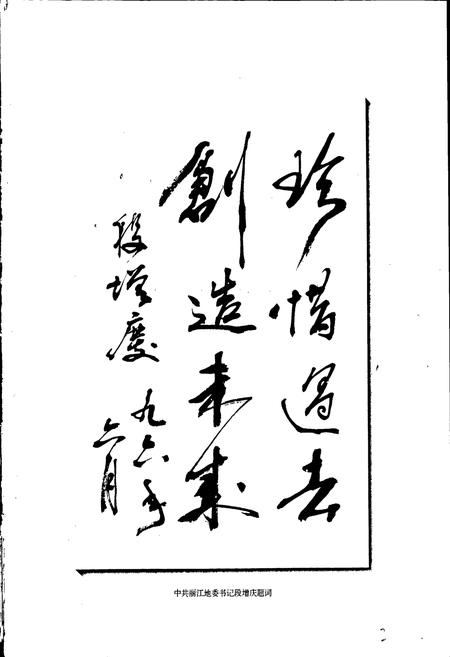 珍惜過去
創造未来
段增慶
九六年
六月
中共丽江地委书记段增庆题词